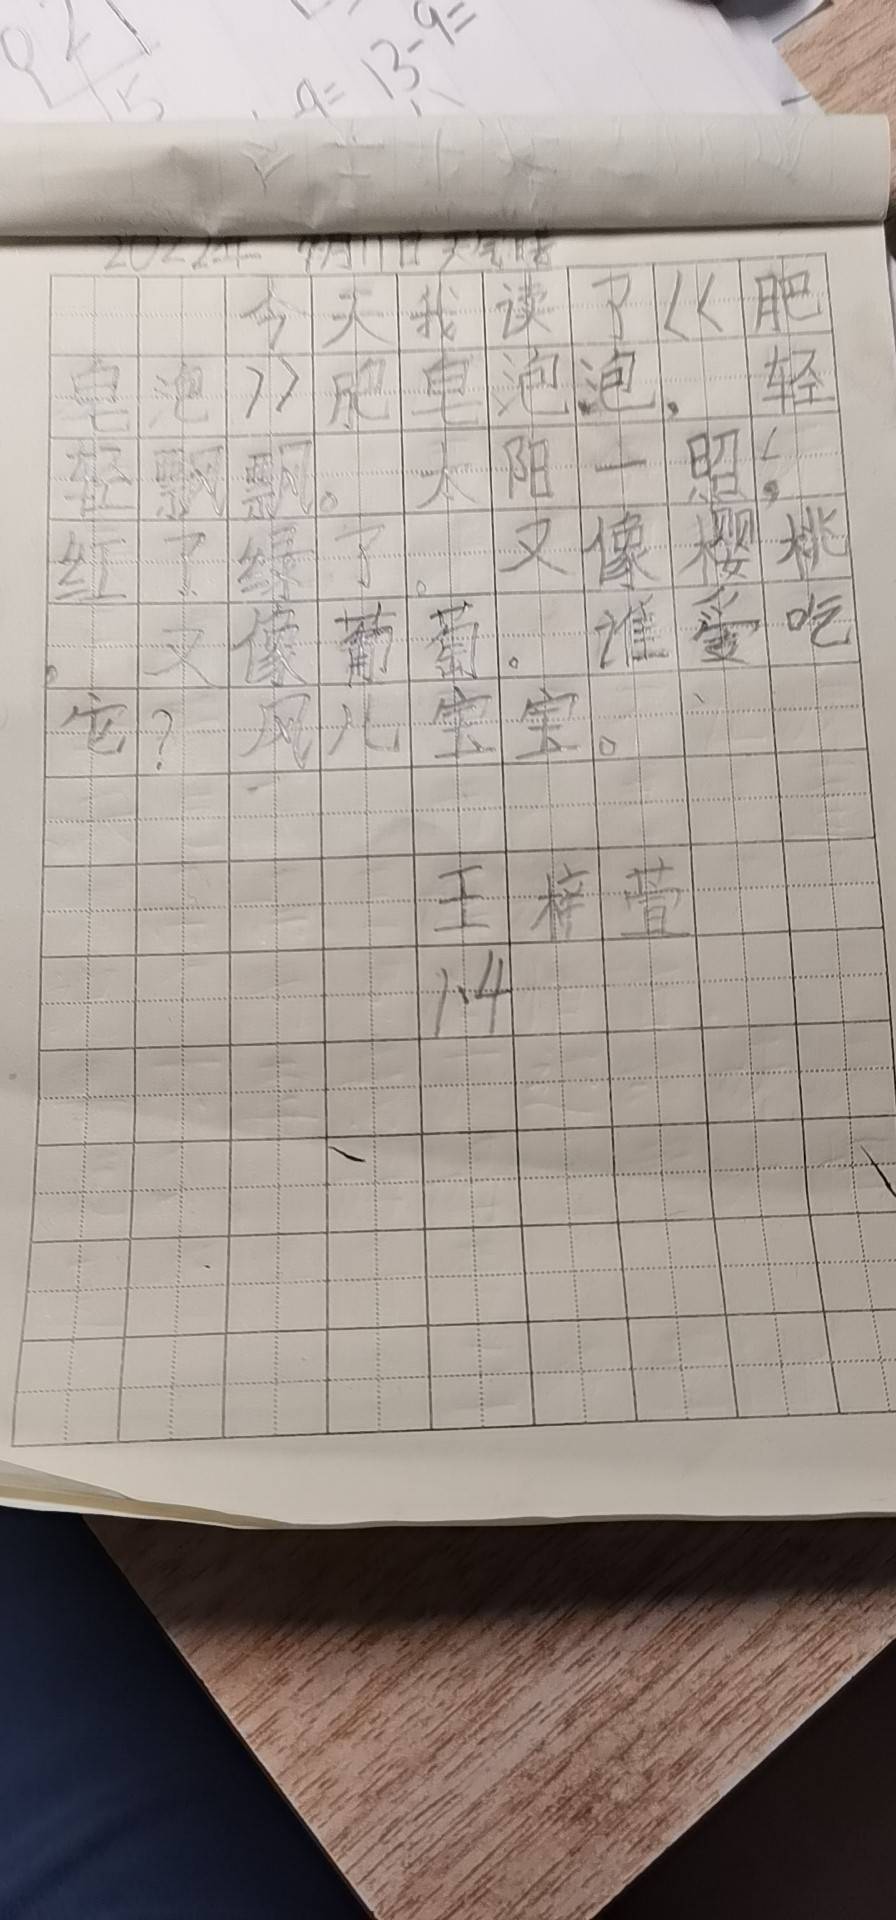 9= 13-9=
5
2022年 9月11日天气晴
今天我读了《肥
皂泡》肥皂泡泡，轻
轻飘飘。太阳一照，
红了绿了。又像樱桃
，又像葡萄。谁爱吃
它？风儿宝宝。
王梓萱
1.4